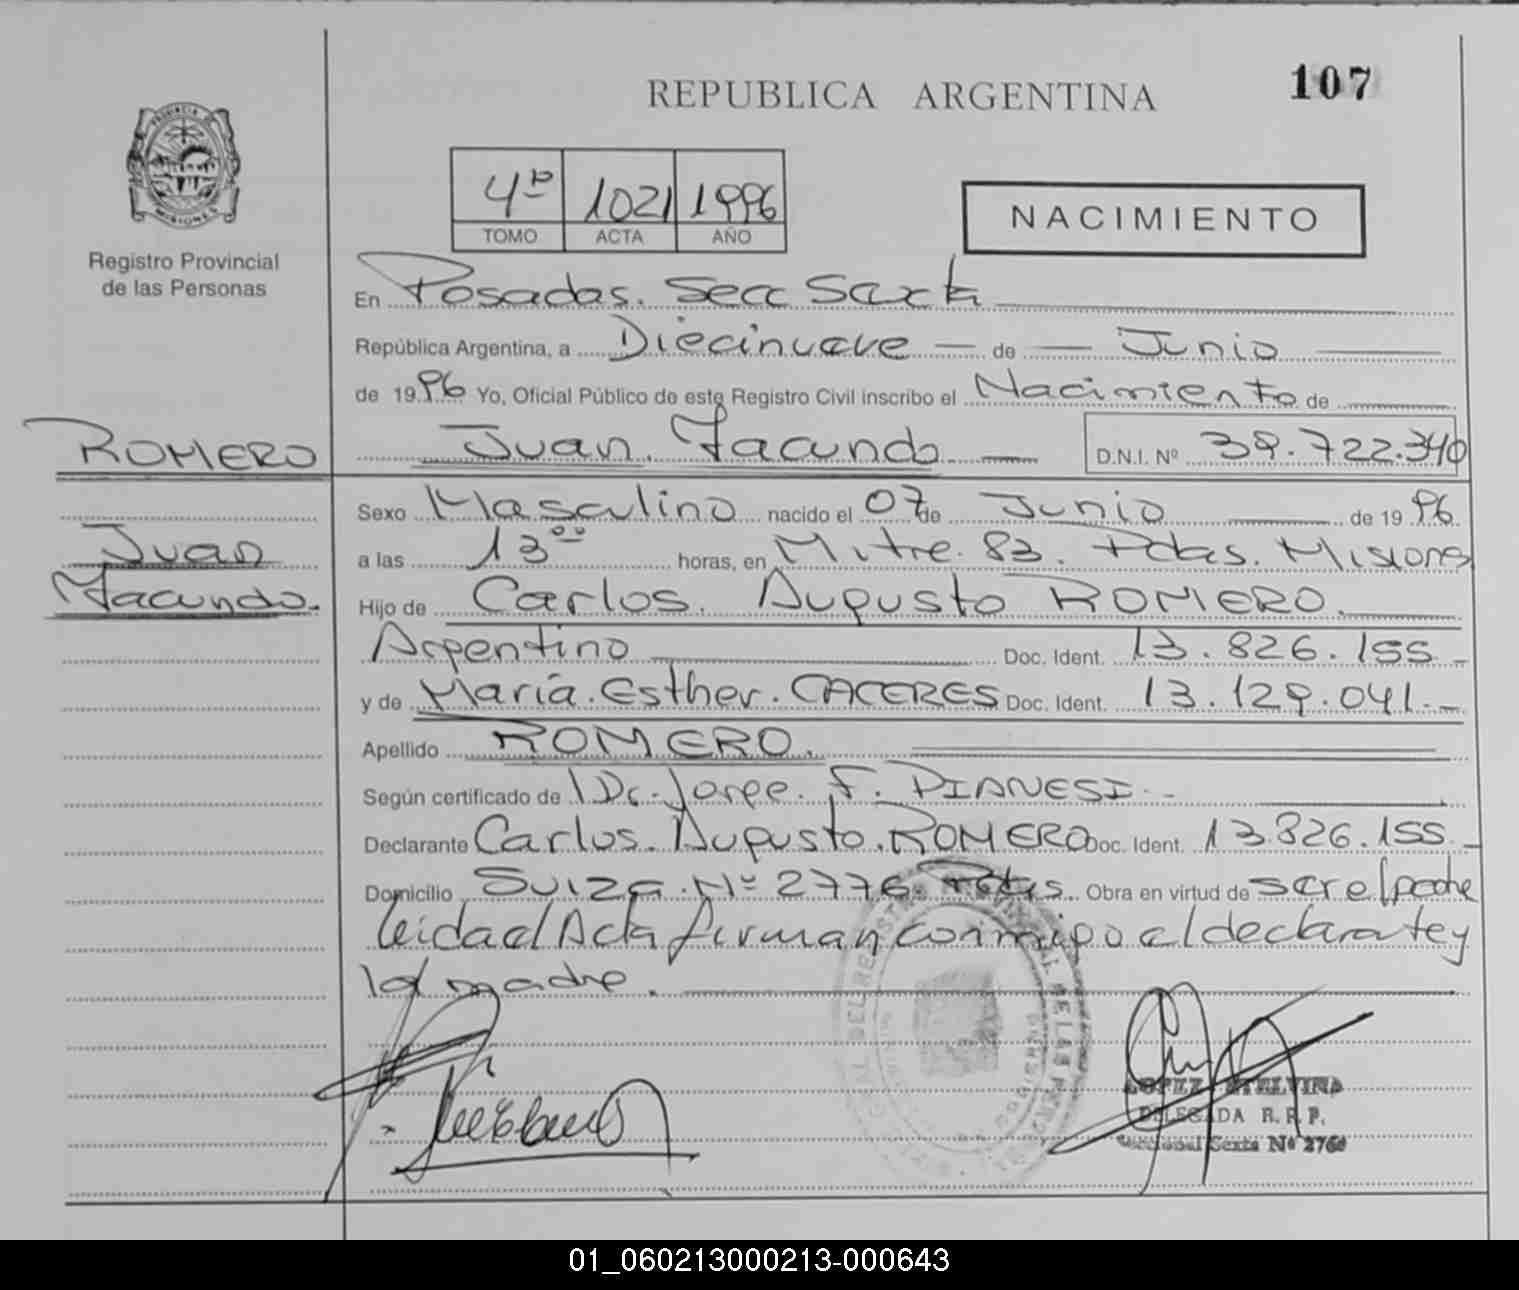 REPUBLICA ARGENTINA
107
PROVINCIA DE
MISIONES
Registro Provincial
de las Personas
4º 1021 1996
TOMO ACTA AÑO
NACIMIENTO
En Posadas. Secc Sexta
República Argentina, a Diecinueve de Junio
de 1996 Yo, Oficial Público de este Registro Civil inscribo el Nacimiento de
ROMERO
Juan. Facundo D.N.I. Nº 39.722.340
Juan
Facundo.
Sexo Masculino nacido el 07 de Junio de 1996
a las 13⁰⁰ horas, en Mitre. 83. Pdas. Misiones
Hijo de Carlos. Augusto ROMERO.
Argentino Doc. Ident. 13.826.155
y de María. Esther. CACERES Doc. Ident. 13.129.041.-
Apellido ROMERO.
Según certificado de Dr. Jorge. F. PIANESI.-
Declarante Carlos. Augusto. ROMERO Doc. Ident. 13.826.155.-
Domicilio Suiza. Nº 2776. Pdas. Obra en virtud de ser el padre
leida el Acta firman conmigo el declarante y
la madre.
LOPEZ ETELVINA
DELEGADA R.P.P.
Seccional Sexta Nº
01_060213000213-000643